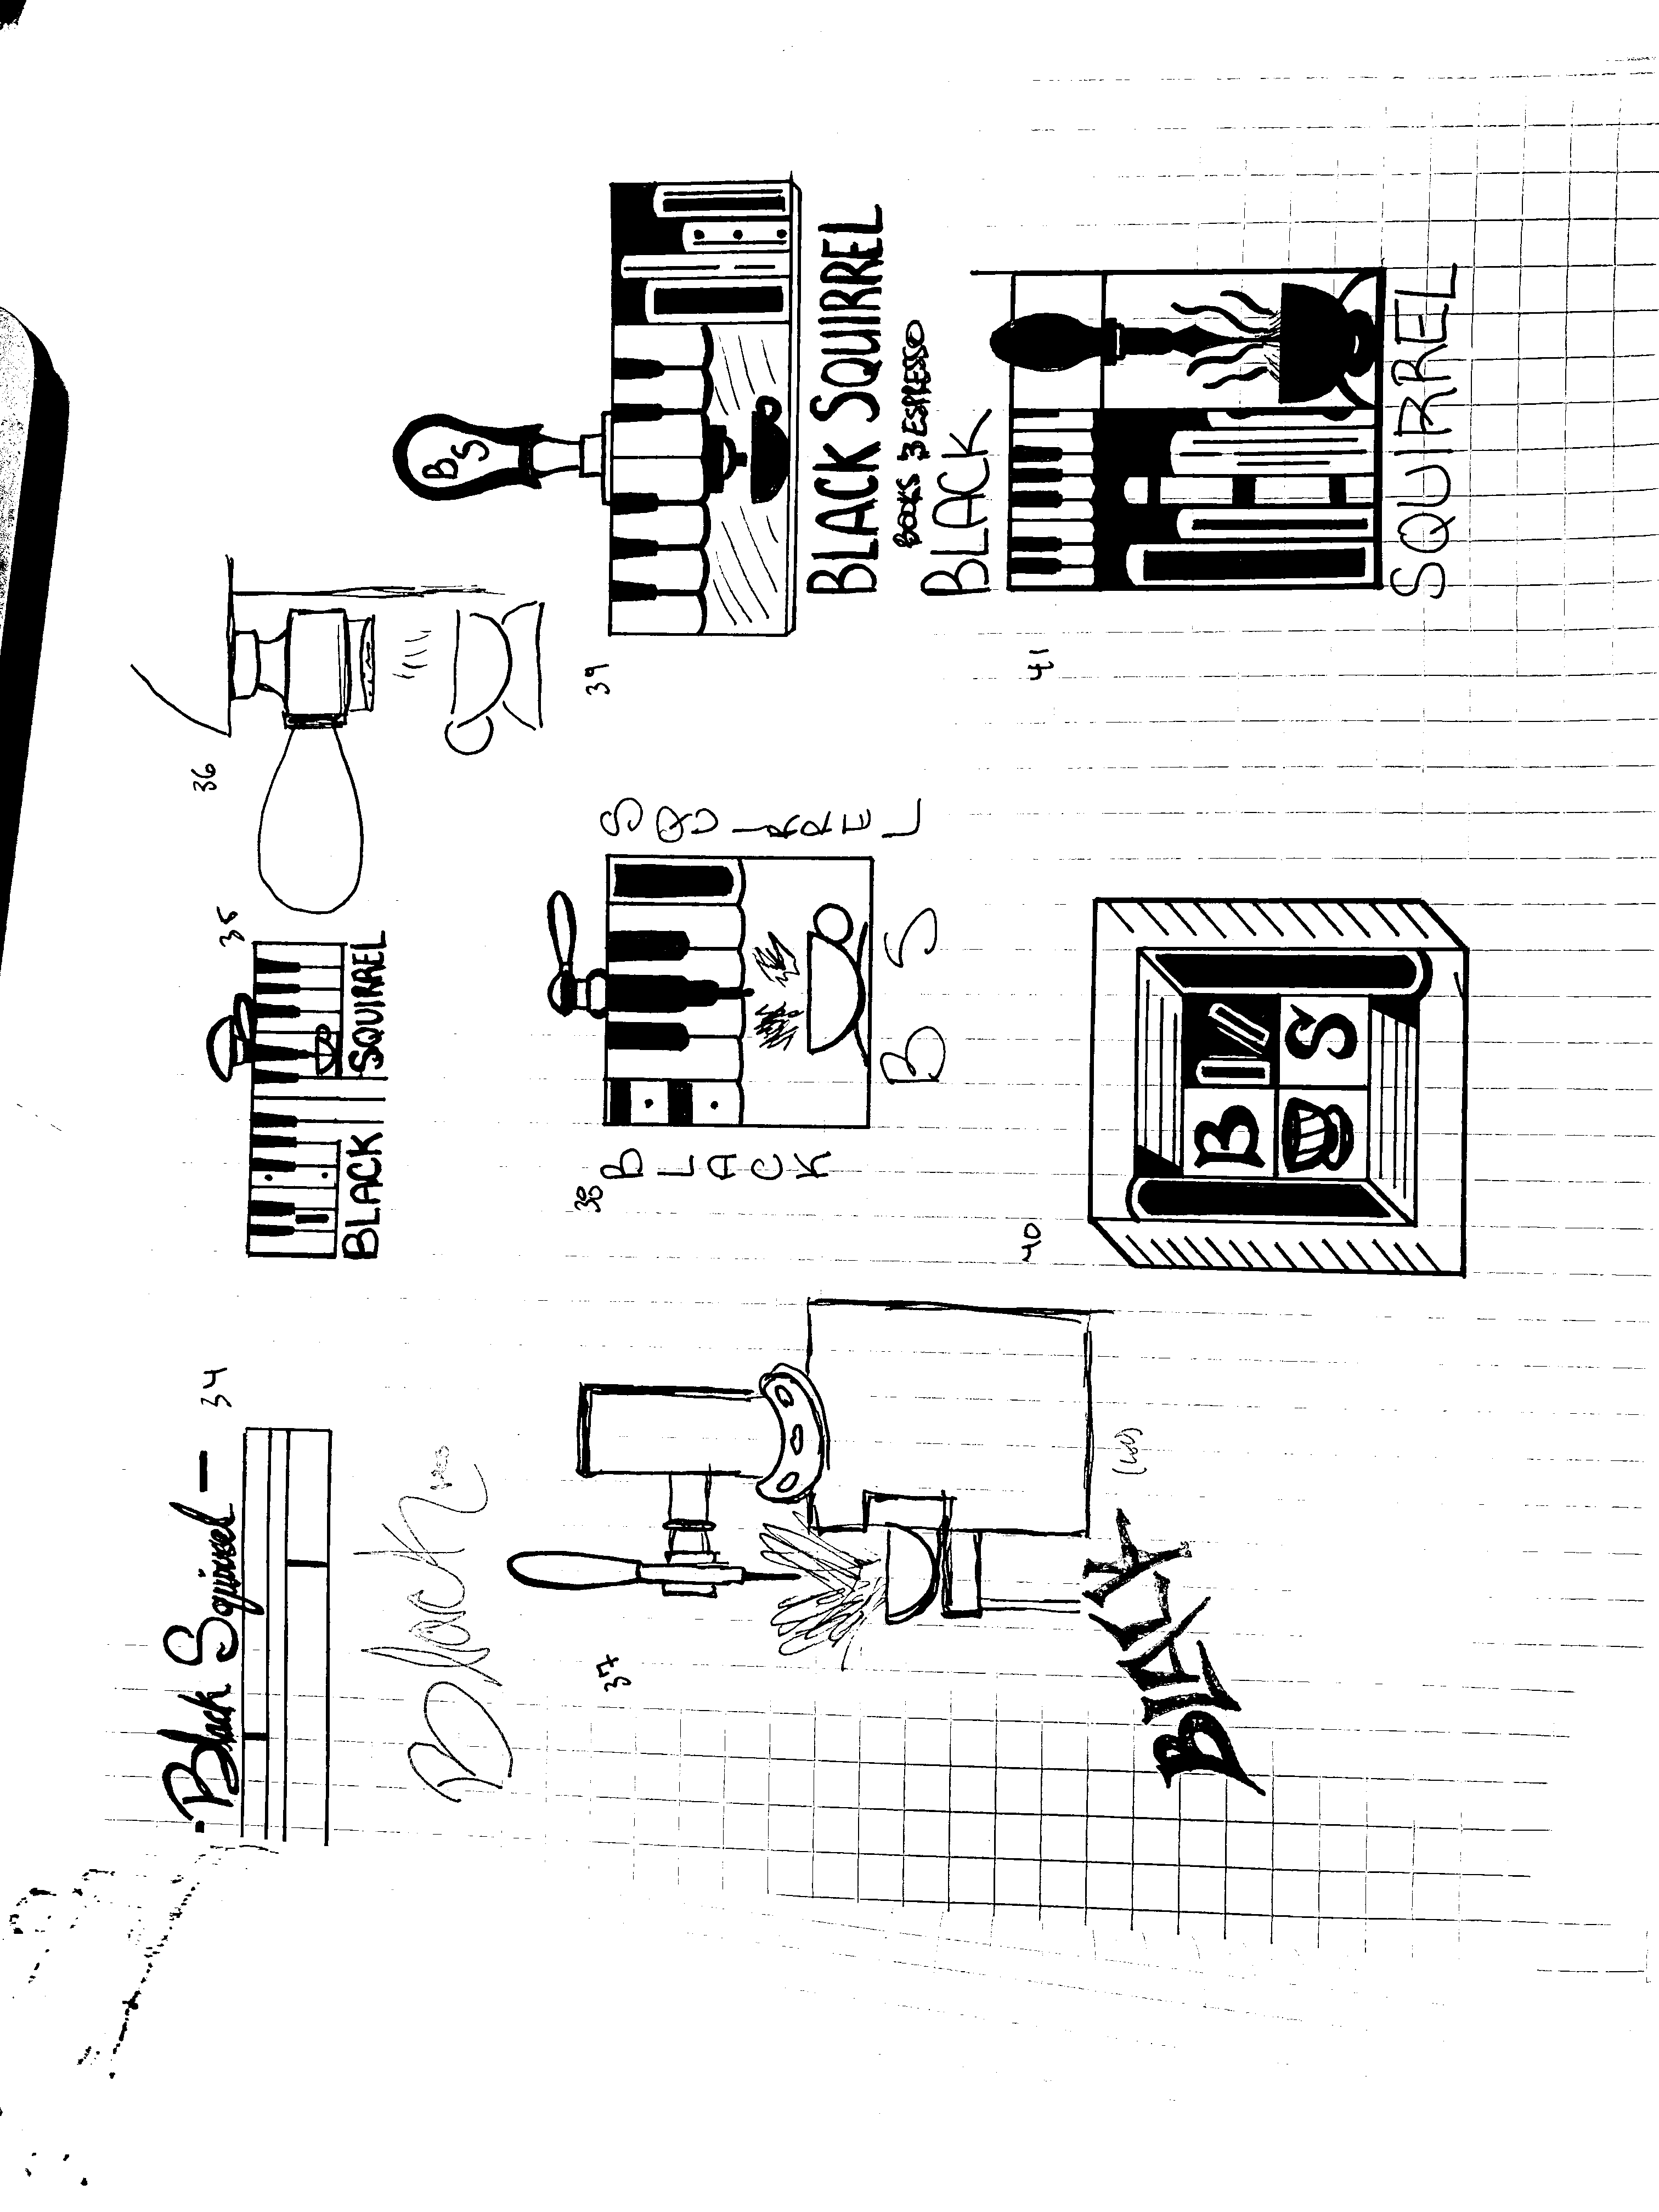 34
Black Squirrel
Black
35
BLACK SQUIRREL
36
37
BLACK
38
BLACK
SQUIRREL
B S
39
BS
BLACK SQUIRREL
BOOKS & ESPRESSO
40
B
S
41
BLACK
SQUIRREL